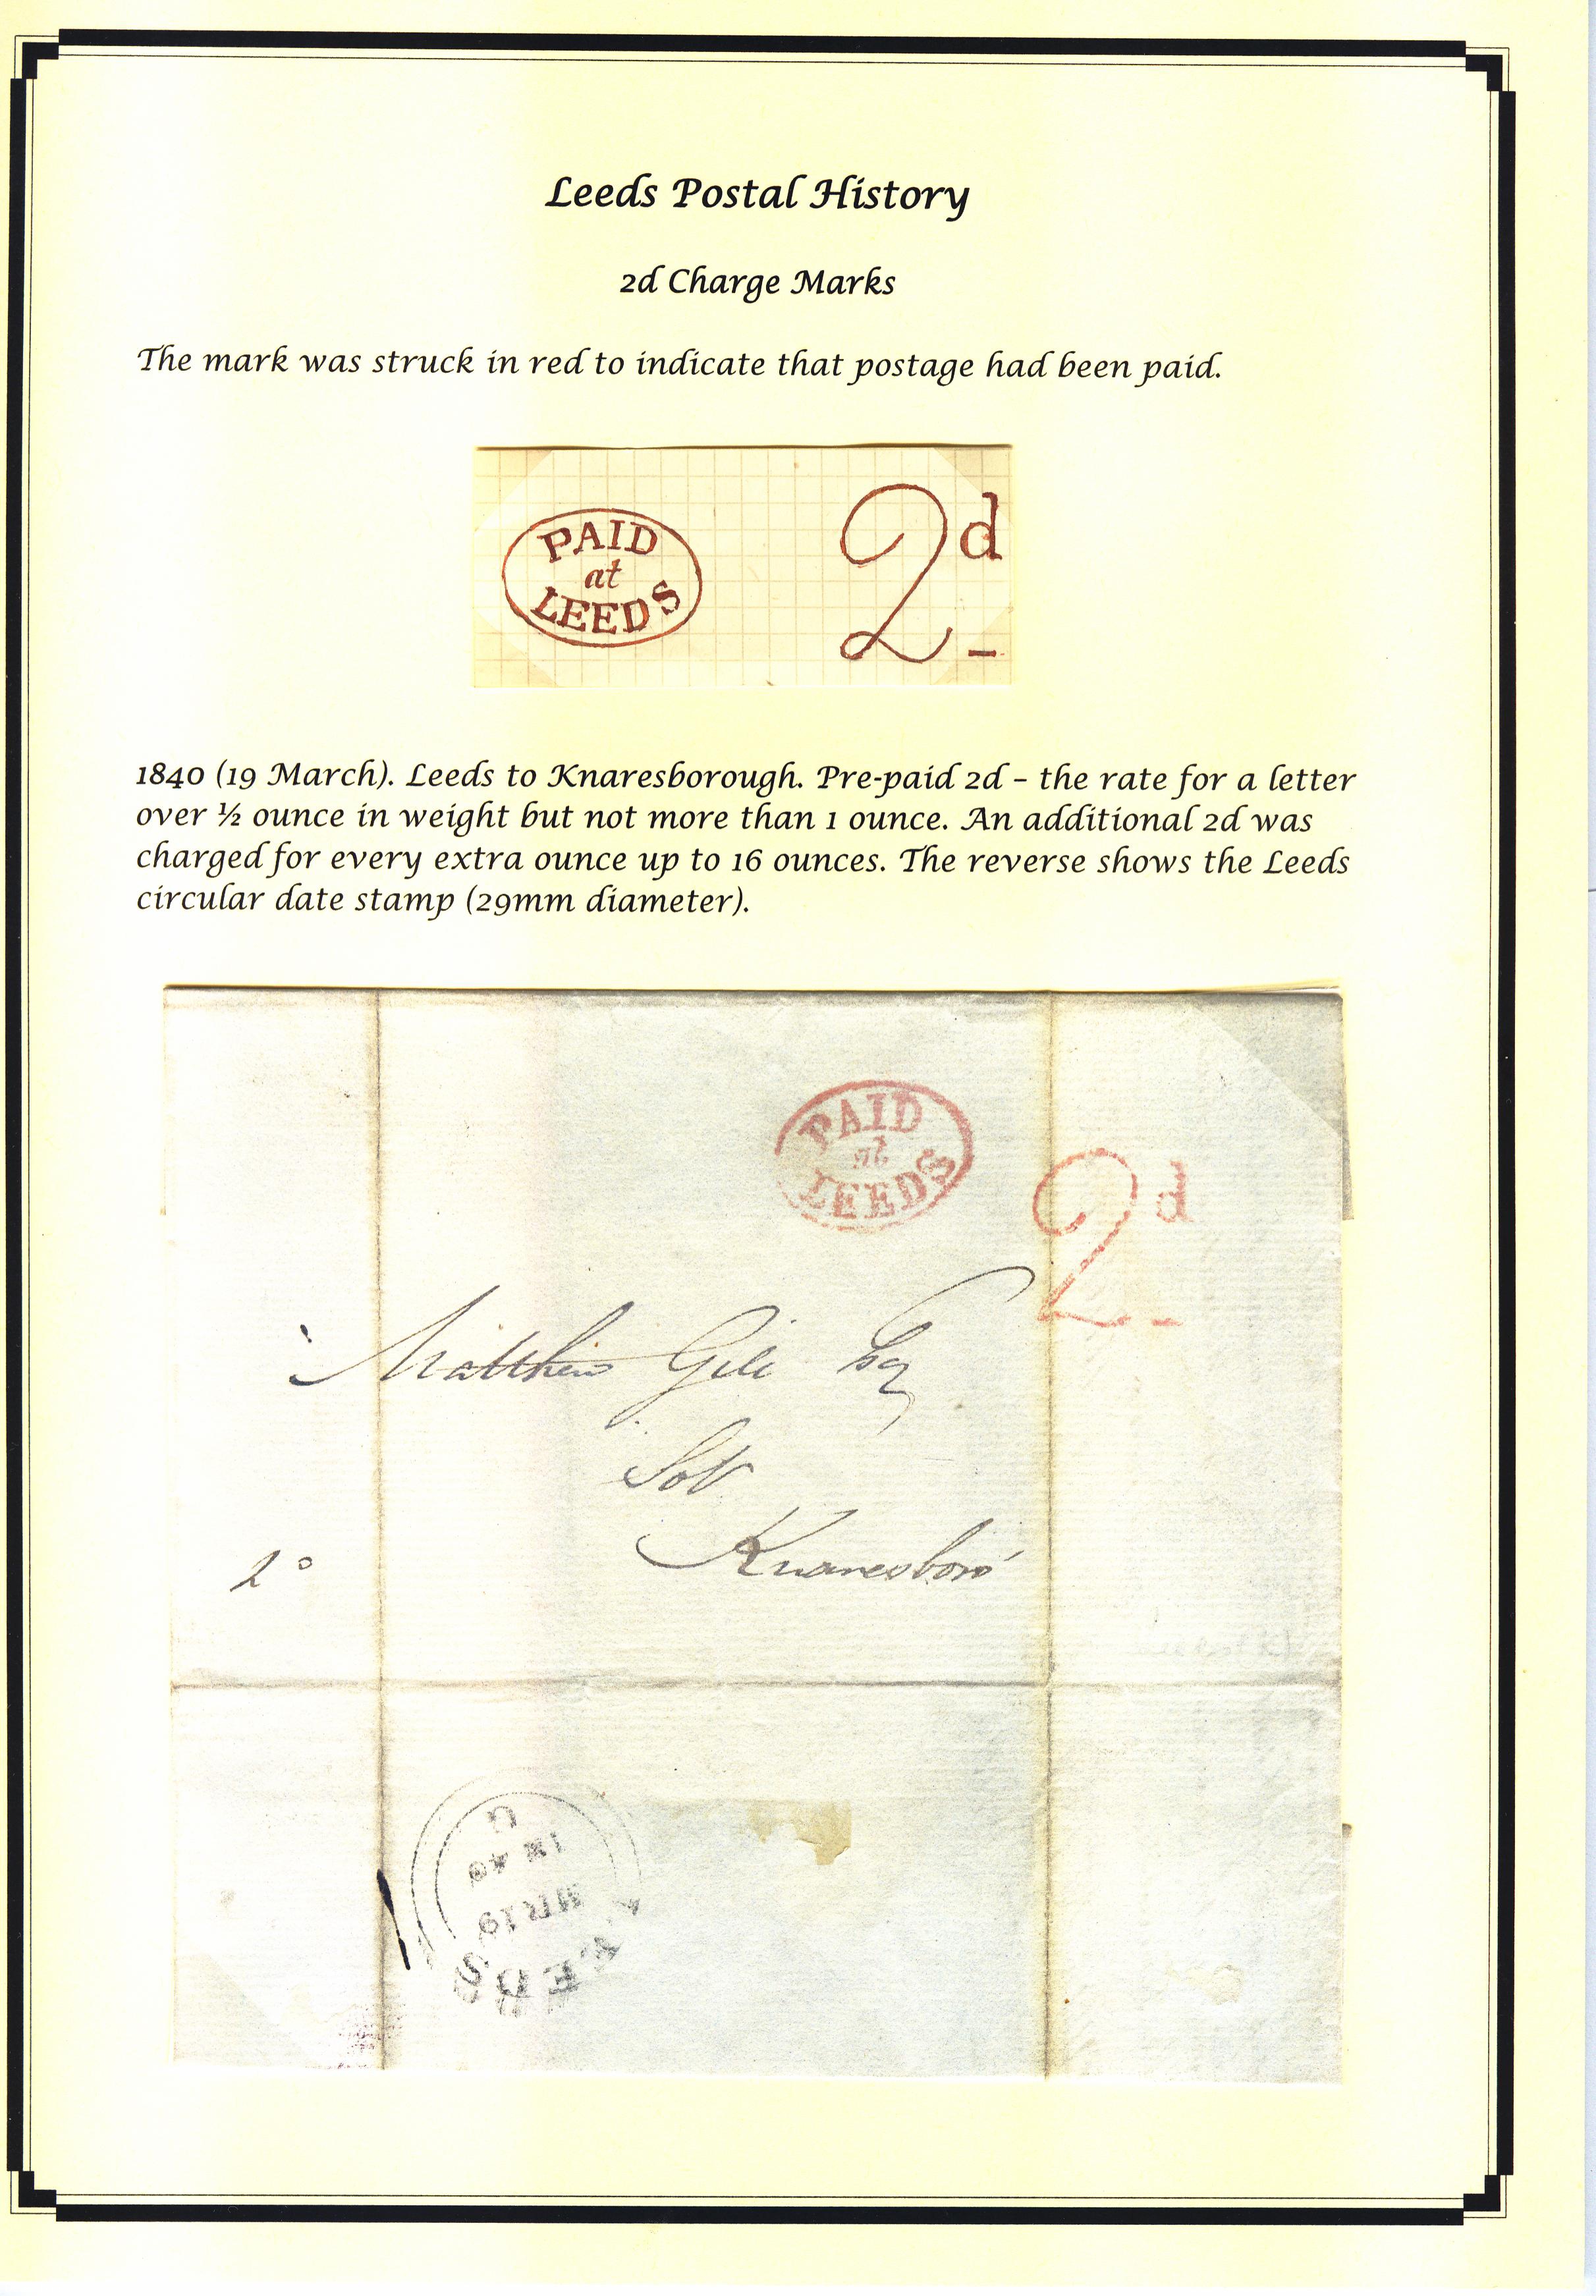 Leeds Postal History
2d Charge Marks
The mark was struck in red to indicate that postage had been paid.
PAID
at
LEEDS
2d
1840 (19 March). Leeds to Knaresborough. Pre-paid 2d – the rate for a letter
over ½ ounce in weight but not more than 1 ounce. An additional 2d was
charged for every extra ounce up to 16 ounces. The reverse shows the Leeds
circular date stamp (29mm diameter).
PAID
at
LEEDS
2d
Matthew Gill Esq
Solr
Knaresboro'
2°
LEEDS
MR 19
G